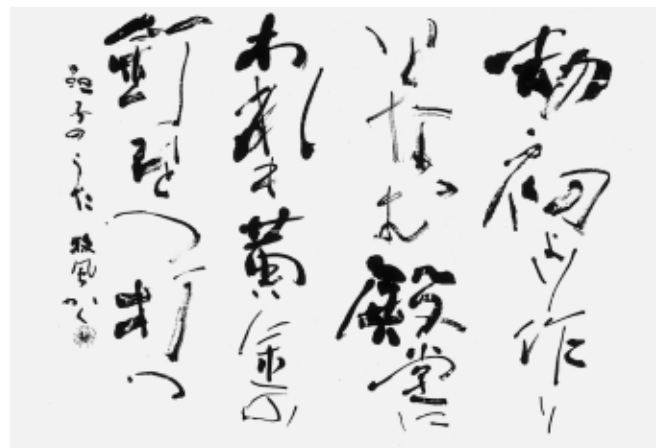 劫初より作り
いとなむ殿堂に
われも黄金の
釘ひとつ打つ
晶子のうた 風かく